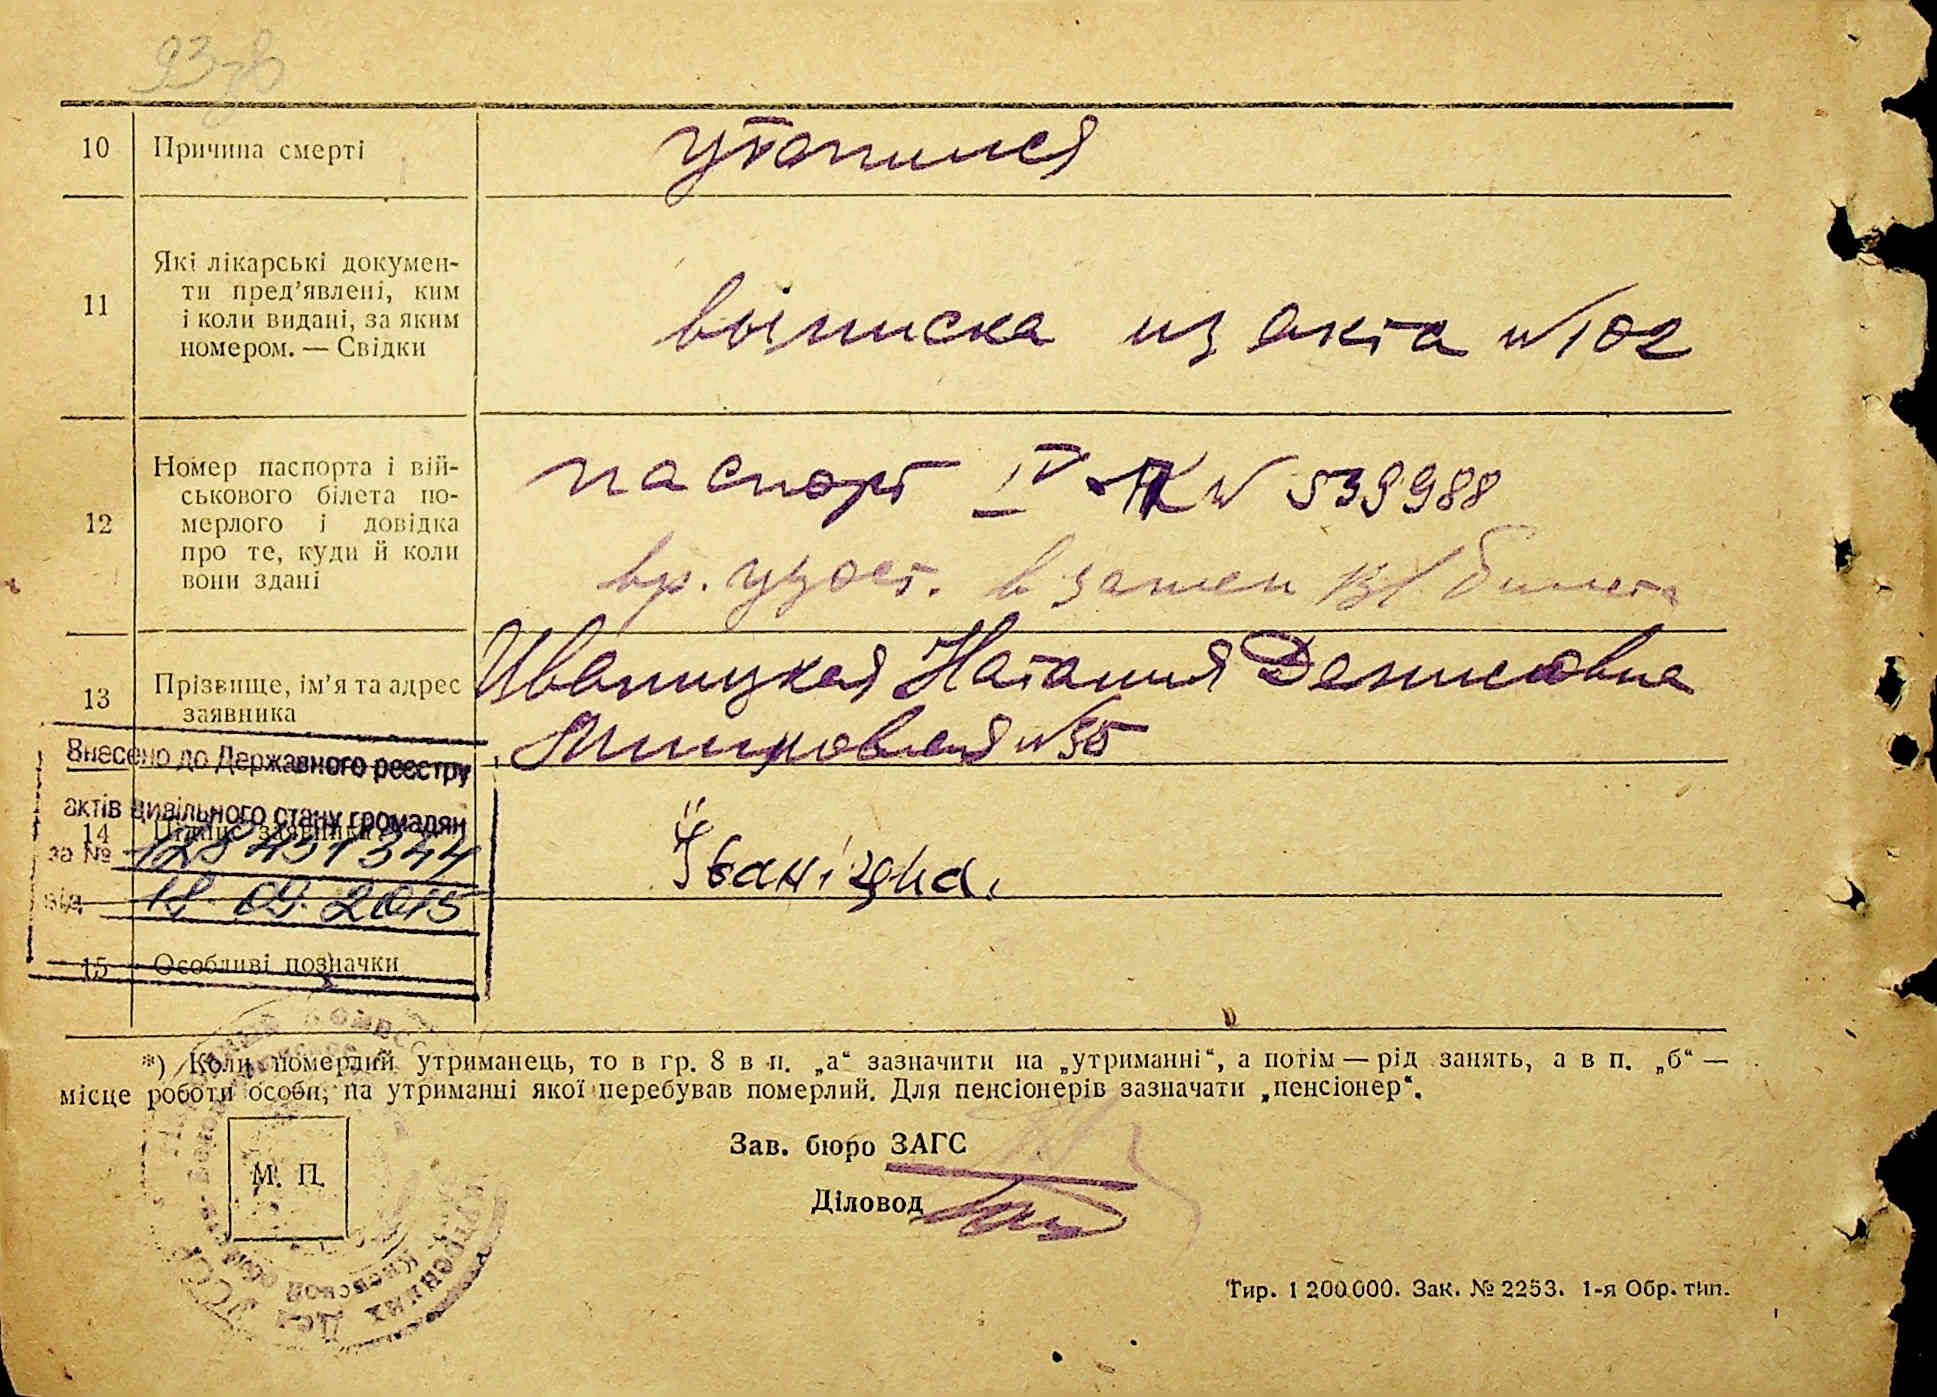 10 Причина смерті утопился
11 Які лікарські докумен-
ти пред’явлені, ким
і коли видані, за яким
номером. — Свідки
выписка из акта №102
12 Номер паспорта і вій-
ськового білета по-
мерлого і довідка
про те, куди й коли
вони здані
паспорт IV АК № 539988
вр. удост. взамен в/билета
13 Прізвище, ім’я та адрес
заявника
Иваницкая Наталия Денисовна
№35
Внесено до Державного реєстру
актів цивільного стану громадян
14 Підпис заявника
Іваніцка.
за №
від 18.09.2015
15 Особливі позначки
*) Коли померлий утриманець, то в гр. 8 в п. „а“ зазначити на „утриманні“, а потім — рід занять, а в п. „б“ —
місце роботи особи, на утриманні якої перебував померлий. Для пенсіонерів зазначати „пенсіонер“.
М. П.
Зав. бюро ЗАГС
Діловод
Тир. 1 200.000. Зак. № 2253. 1-я Обр. тип.